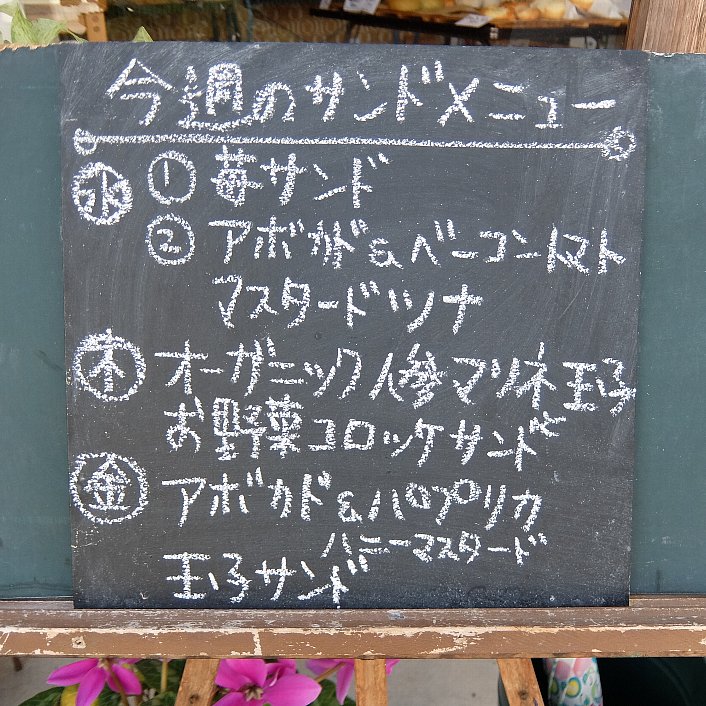 今週のサンドメニュー
水 ① 苺サンド
② アボガド&ベーコントマト
マスタードツナ
木 オーガニック人参マリネ玉子
お野菜コロッケサンド
金 アボカド&パプリカ
ハニーマスタード
玉子サンド